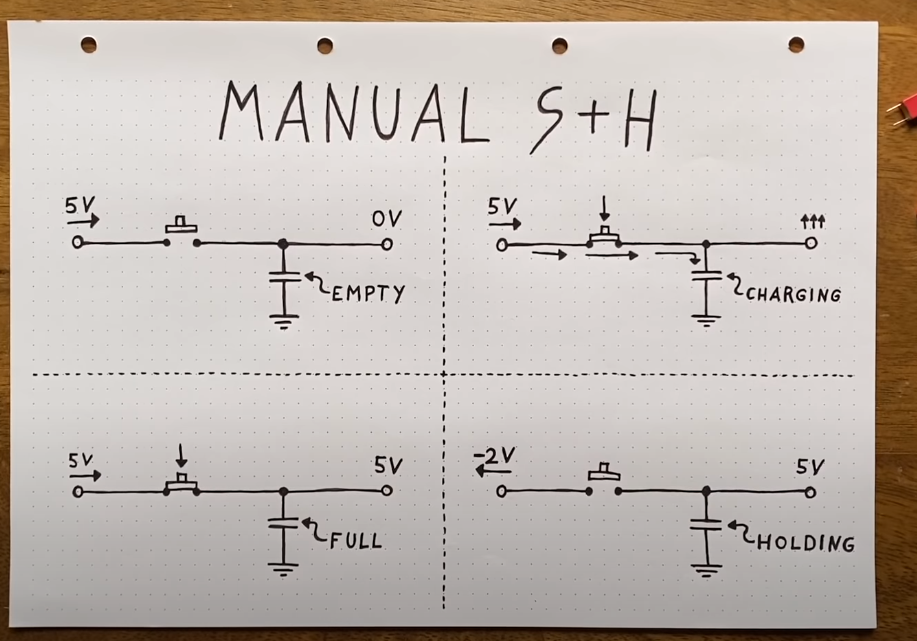 MANUAL S+H
5V
0V
EMPTY
5V
CHARGING
5V
5V
FULL
-2V
5V
HOLDING